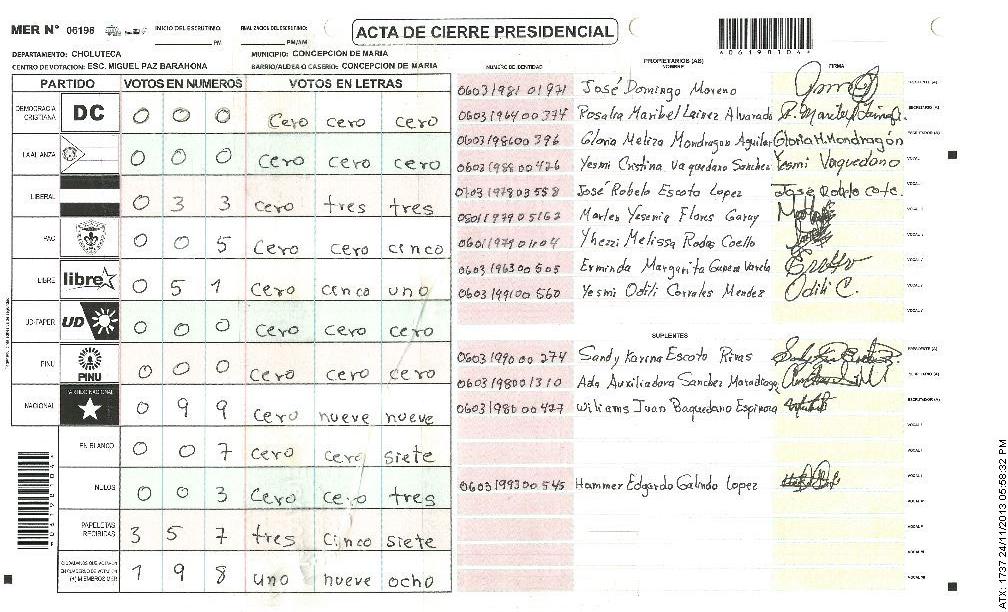 MER Nº 06198 INICIO DEL ESCRUTINIO: PM FINALIZACION DEL ESCRUTINIO: PM/AM
ACTA DE CIERRE PRESIDENCIAL
DEPARTAMENTO: CHOLUTECA MUNICIPIO: CONCEPCION DE MARIA
CENTRO DE VOTACION: ESC. MIGUEL PAZ BARAHONA BARRIO/ALDEA O CASERIO: CONCEPCION DE MARIA
PARTIDO VOTOS EN NUMEROS VOTOS EN LETRAS
DEMOCRACIA CRISTIANA DC 0 0 0 cero cero cero
LA ALIANZA 0 0 0 cero cero cero
LIBERAL 0 3 3 cero tres tres
PAC 0 0 5 cero cero cinco
LIBRE libre 0 5 1 cero cinco uno
UD-FAPER UD 0 0 0 cero cero cero
PINU PINU 0 0 0 cero cero cero
NACIONAL PARTIDO NACIONAL 0 9 9 cero nueve nueve
EN BLANCO 0 0 7 cero cero siete
NULOS 0 0 3 cero cero tres
PAPELETAS RECIBIDAS 3 5 7 tres cinco siete
CIUDADANOS QUE VOTARON EN CUADERNO DE VOTACION (+) MIEMBROS MER 1 9 8 uno nueve ocho
NUMERO DE IDENTIDAD PROPIETARIOS (AS) NOMBRE FIRMA
0603198101971 José Domingo Moreno
0603196400374 Rosalia Maribel Lainez Alvarado
0603198600396 Gloria Meliza Mondragon Aguilar Gloria M. Mondragón
0603198800426 Yesmi Cristina Vaquedano Sanchez Yesmi Vaquedano
0703197803558 José Robelo Escoto Lopez
0801197905162 Marlen Yesenia Flores Garay
Yhezzi Melissa Rodas Coello
0603196300505 Erminda Margarita
0603199100560 Yesmi Odili Corrales Mendez Odili C.
SUPLENTES
0603199000274 Sandy Karina Escoto Rivas
0603198001310 Ada Auxiliadora Sanchez Maradiaga
0603198000427 Wiliams Juan Baquedano Espinoza
0603199300545 Hammer Edgardo Galindo Lopez
4061981044
ATX: 1737 24/11/2013 05:58:32 PM